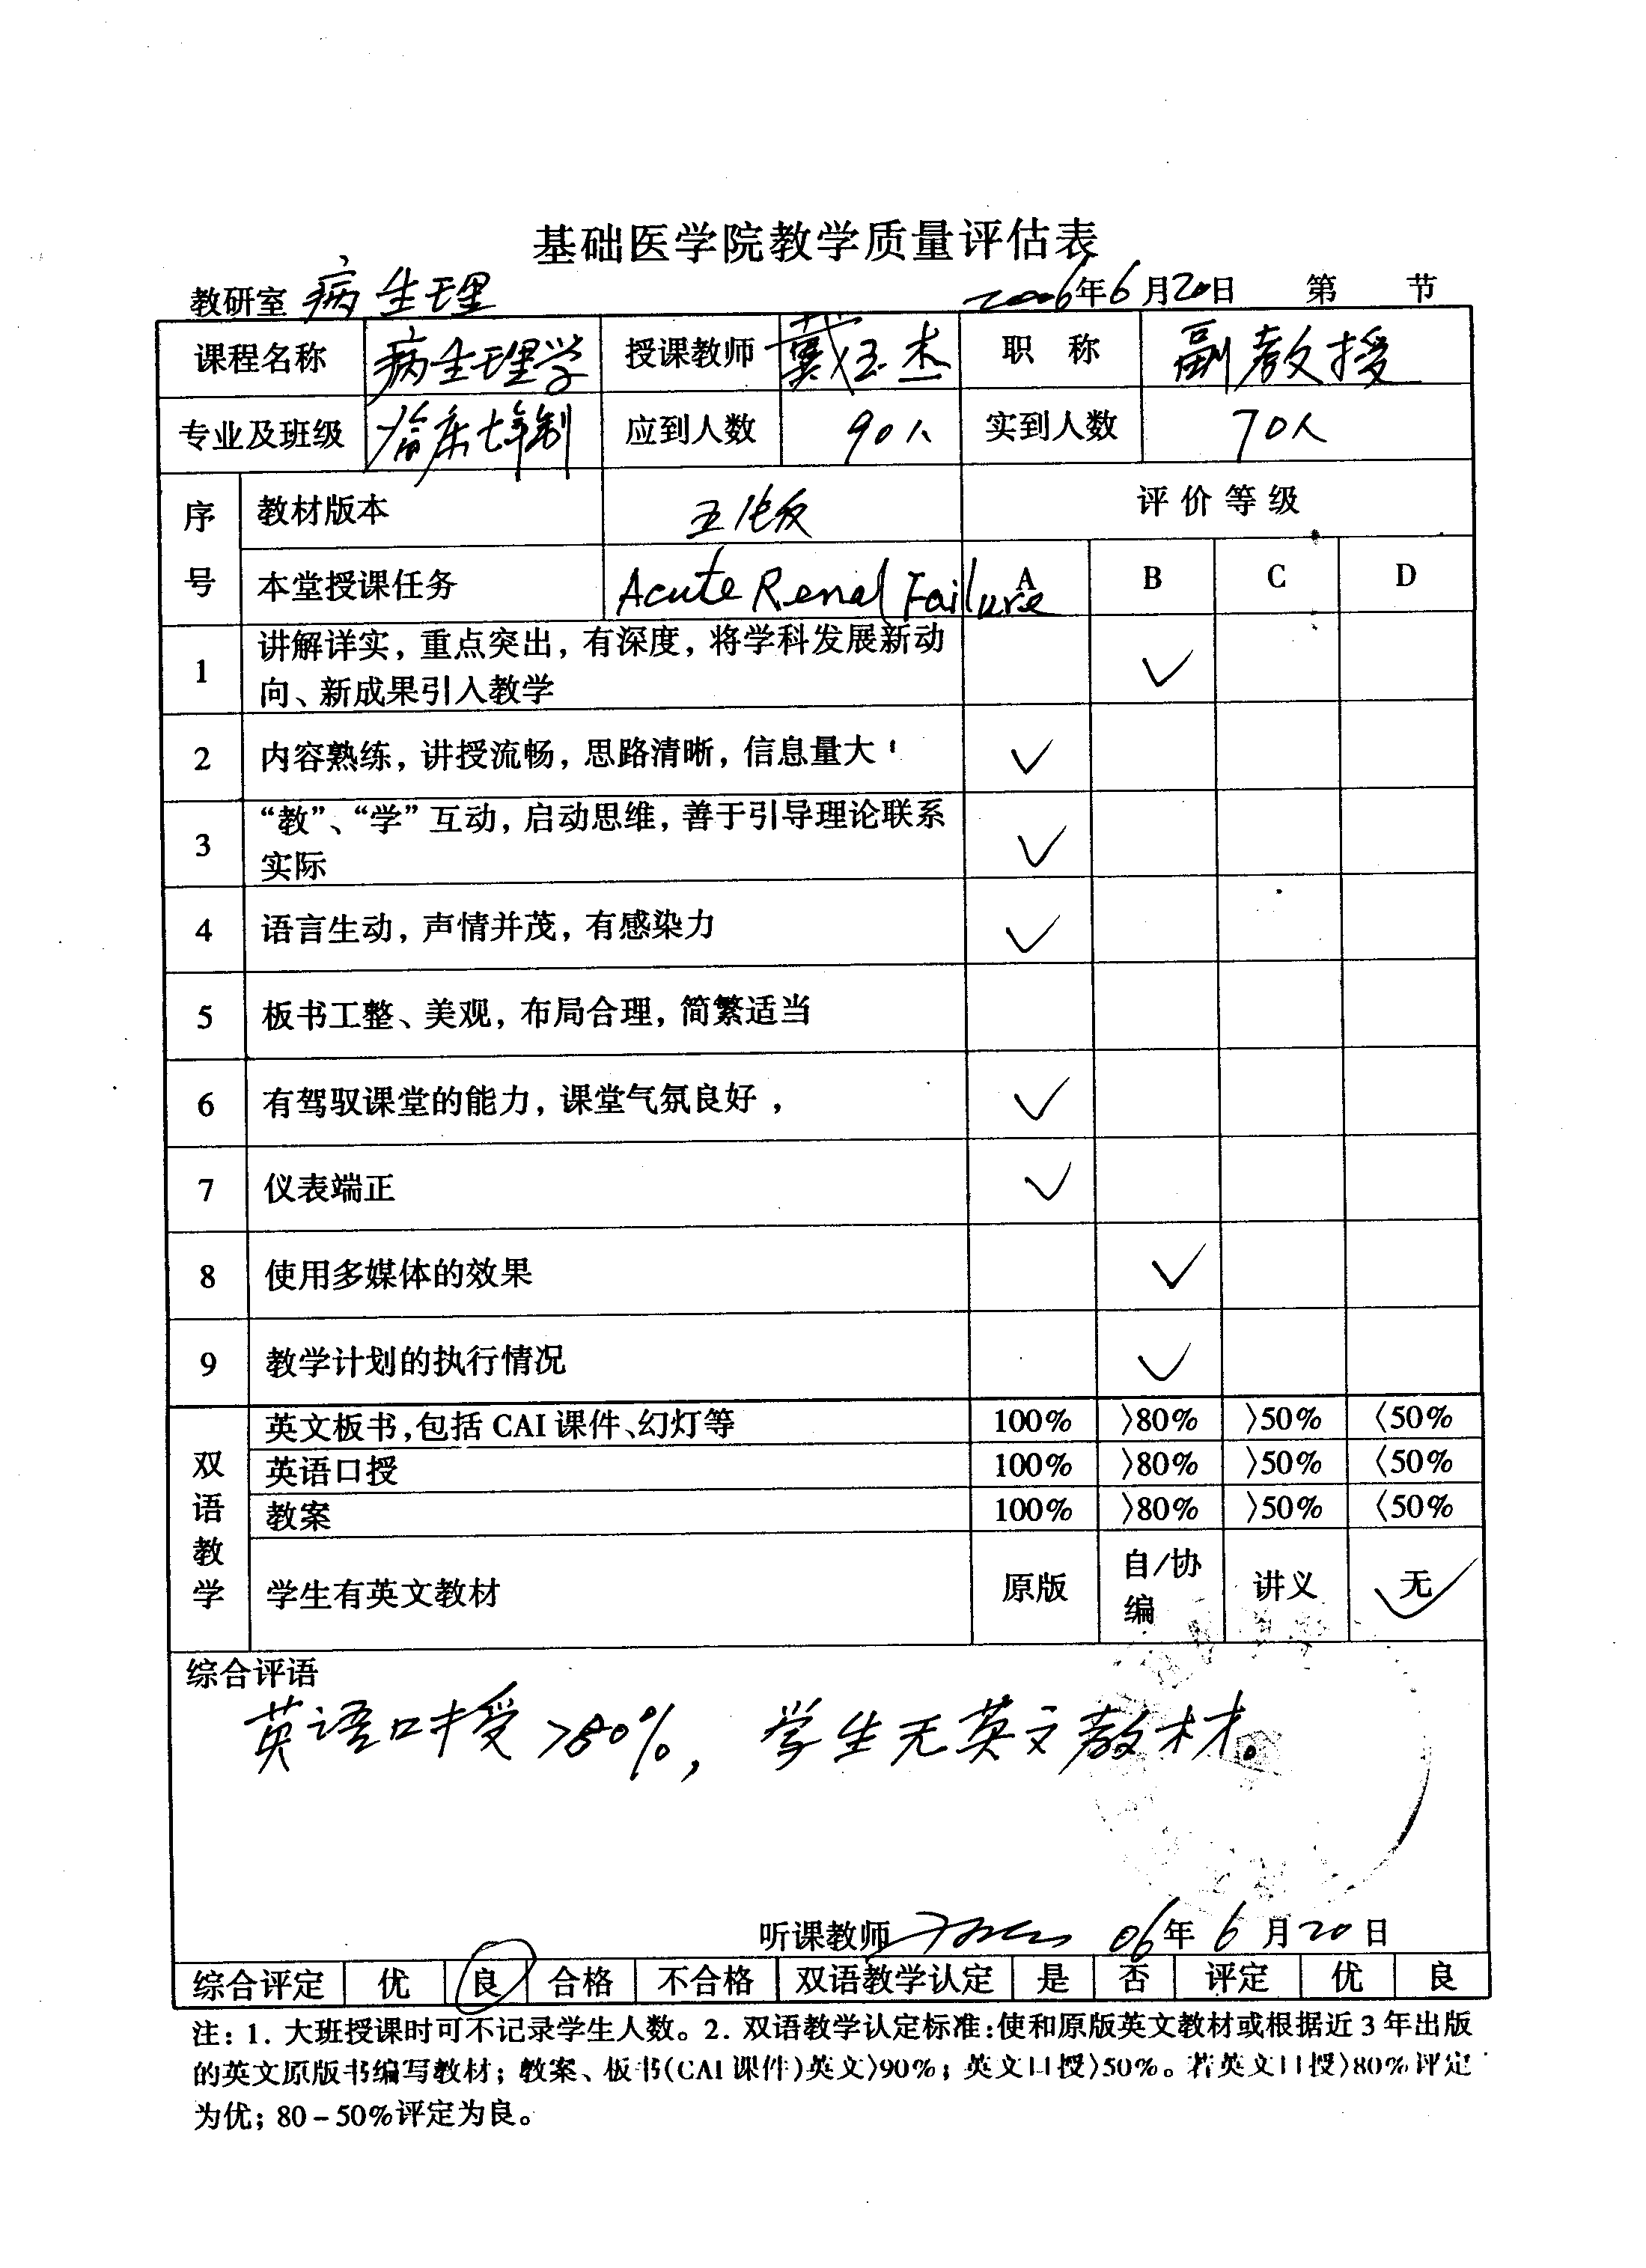 基础医学院教学质量评估表
教研室 病生理 2006年6月20日 第 节
课程名称 病生理学 授课教师 戴玉杰 职称 副教授
专业及班级 临床七年制 应到人数 90人 实到人数 70人
序号 教材版本 五版 评价等级
本堂授课任务 Acute Renal Failure A B C D
1 讲解详实，重点突出，有深度，将学科发展新动
向、新成果引入教学 ✓
2 内容熟练，讲授流畅，思路清晰，信息量大 ✓
3 “教”、“学”互动，启动思维，善于引导理论联系
实际 ✓
4 语言生动，声情并茂，有感染力 ✓
5 板书工整、美观，布局合理，简繁适当
6 有驾驭课堂的能力，课堂气氛良好， ✓
7 仪表端正 ✓
8 使用多媒体的效果 ✓
9 教学计划的执行情况 ✓
双语教学
英文板书,包括CAI课件、幻灯等 100% 〉80% 〉50% 〈50%
英语口授 100% 〉80% 〉50% 〈50%
教案 100% 〉80% 〉50% 〈50%
学生有英文教材 原版 自/协编 讲义 无 ✓
综合评语
英语口授>80%，学生无英文教材。
听课教师 06年6月20日
综合评定 优 良 合格 不合格 双语教学认定 是 否 评定 优 良
注：1. 大班授课时可不记录学生人数。2. 双语教学认定标准:使和原版英文教材或根据近3年出版
的英文原版书编写教材；教案、板书(CAI课件)英文〉90%；英文口授〉50%。若英文口授〉80%评定
为优；80－50%评定为良。